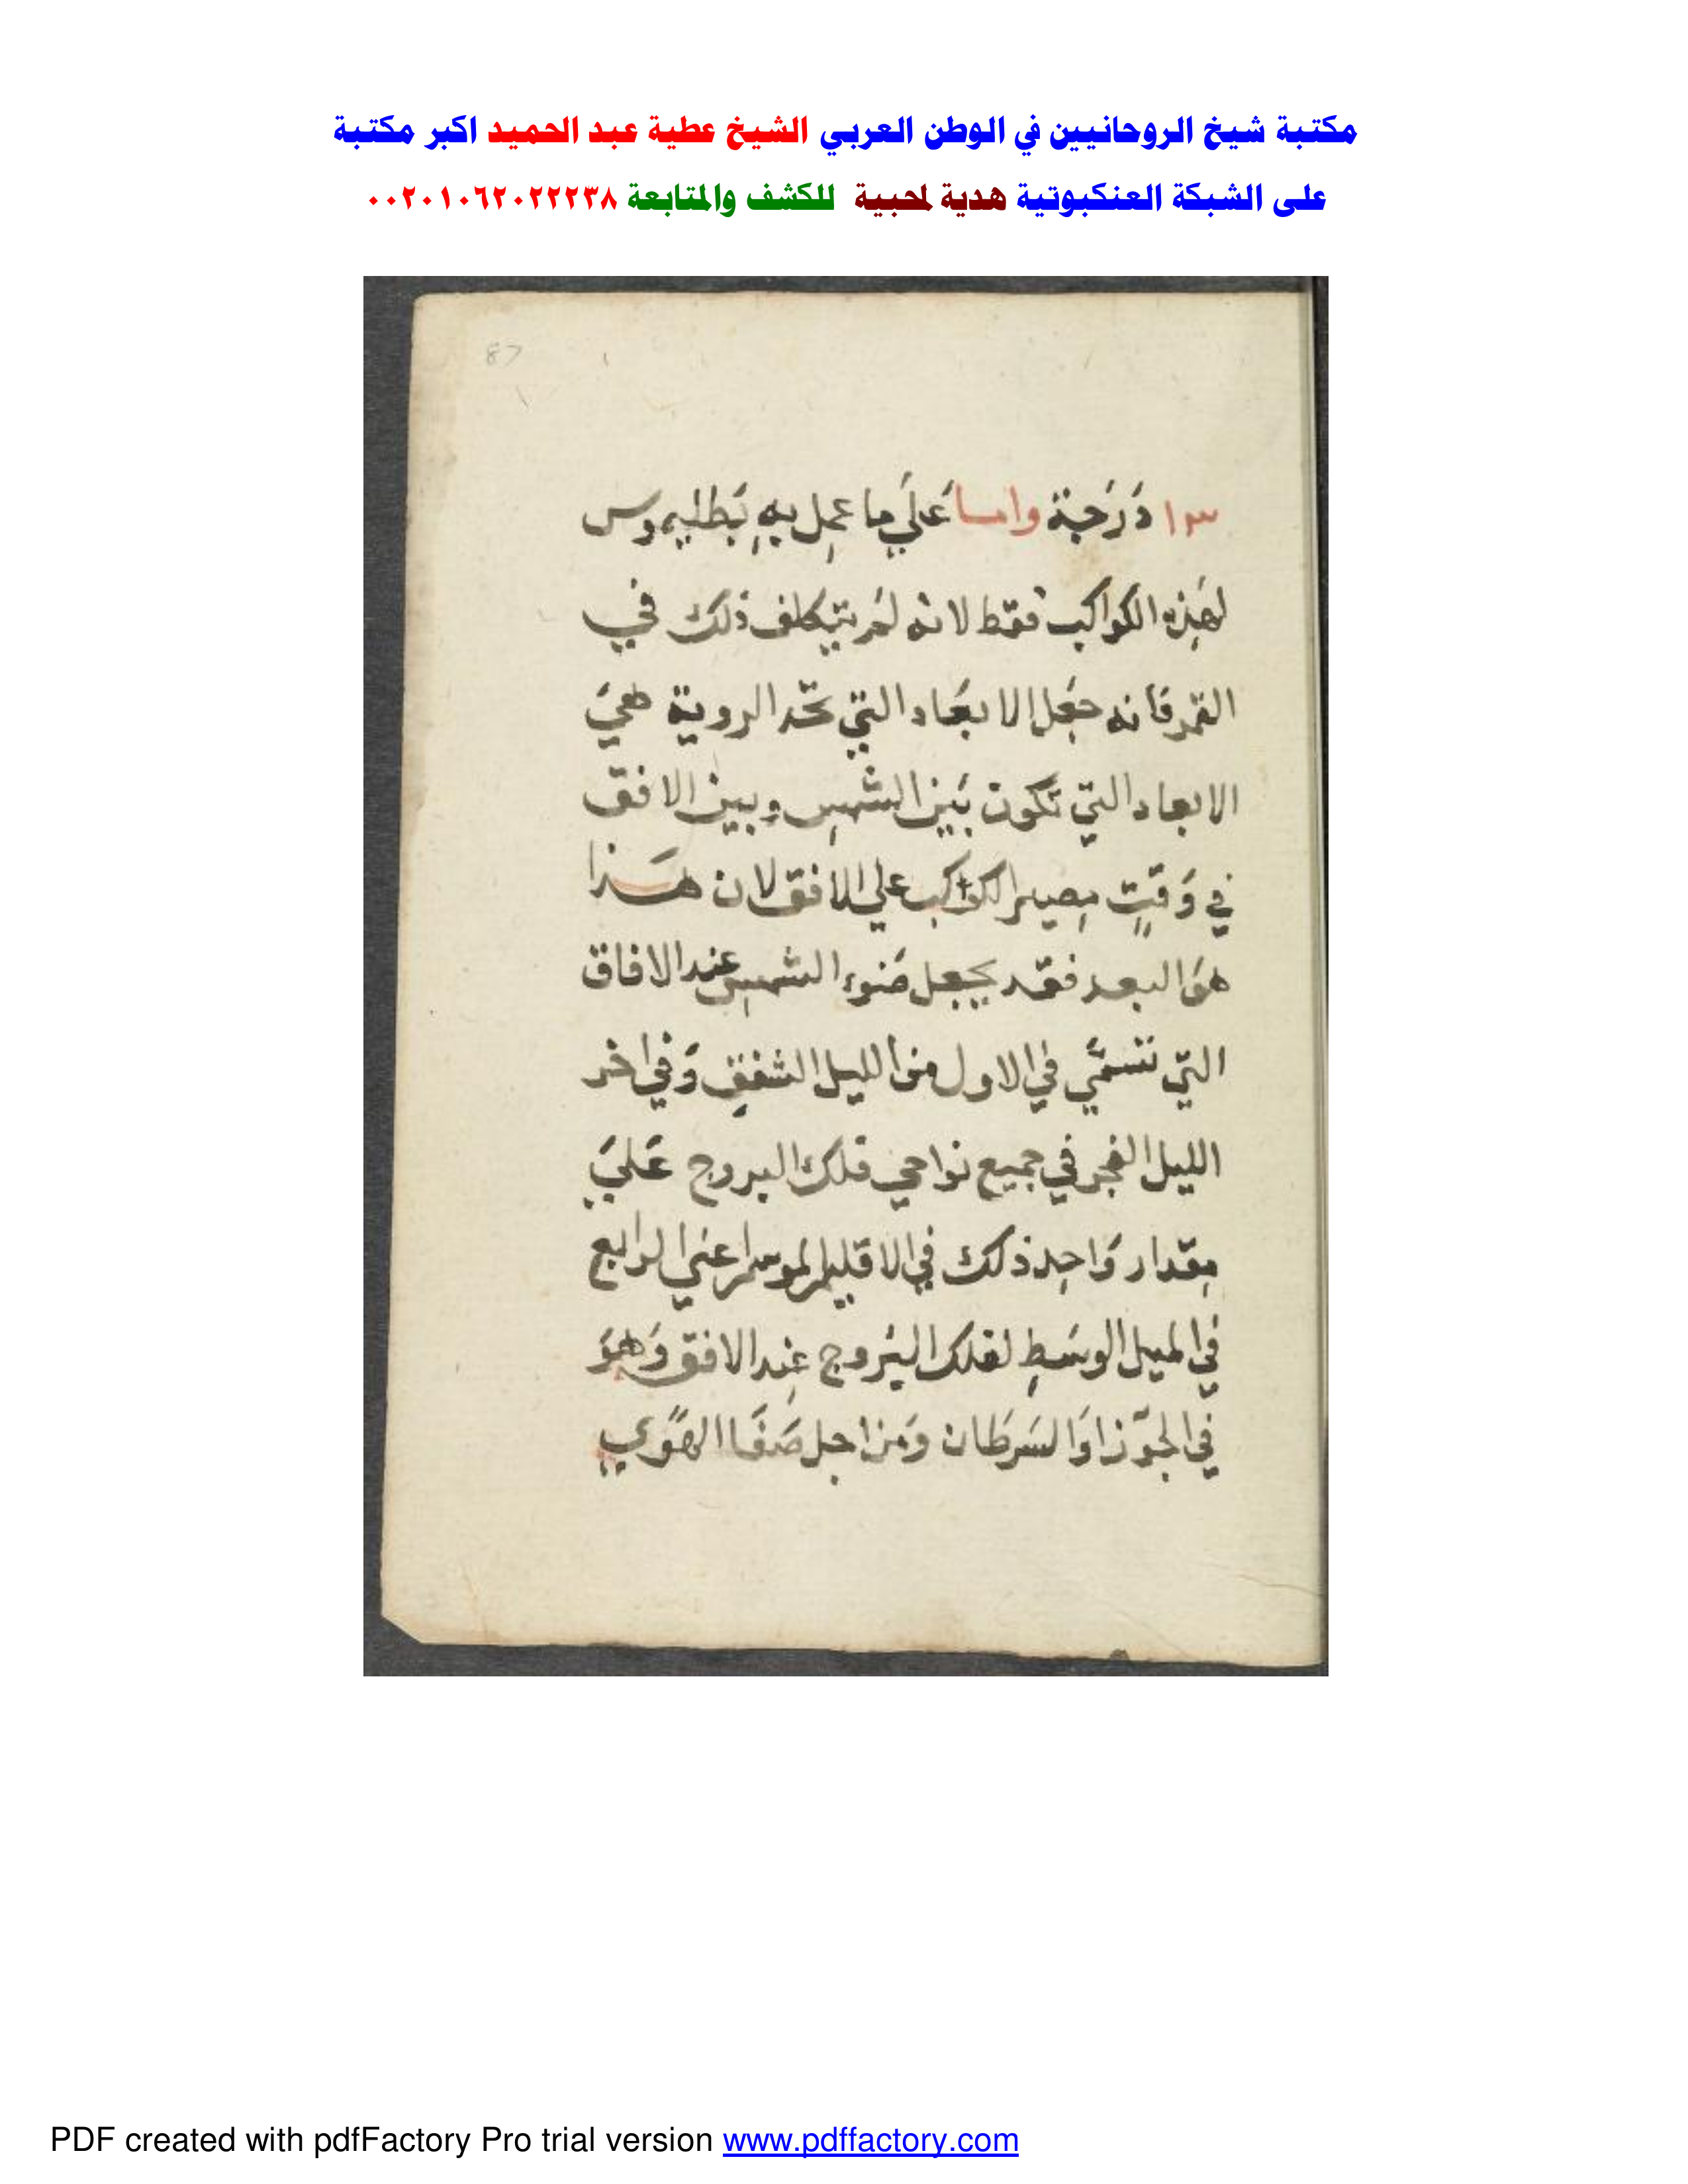 مكتبة شيخ الروحانيين في الوطن العربي الشيخ عطية عبد الحميد اكبر مكتبة
على الشبكة العنكبوتية هدية لمحبية للكشف والمتابعة ٠٠٢٠١٠٦٢٠٢٢٢٣٨
87
١٣ دَرَجَة واما عَليَ ما عمِل بهِ بَطليموس
لهَذِه الكواكب فقط لانه لمَ يتكلف ذلك في
القمر فانه جعَل الابعَاد التي تحّد الروية هيَ
الابعاد التي تكون بَين الشمس وبين الافق
في وَقتٍ مصير الكواكب علي الافق لان هَذا
هوَ البعد فقد يجعل ضَوء الشمس عند الافاق
التي تسمَّي في الاول من الليل الشفق وَفي اخر
الليل الفجر في جميع نواحي فلك البروج عَليَ
مِقدار وَاحِد ذلك في الاقليم اعني الرابع
في الميل الوسَطِ لفلك البُروج عِند الافق وَهوَ
في الجَوّزا وَالسَرطان وَمن اجل صَفَا الهَوَي
PDF created with pdfFactory Pro trial version www.pdffactory.com